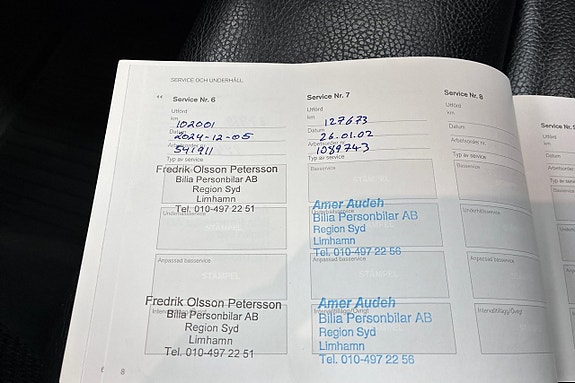 SERVICE OCH UNDERHÅLL
Service Nr. 6
Utförd
km
102001
Datum
2024-12-05
Arbetsorder nr.
541911
Typ av service
Fredrik Olsson Petersson
Bilia Personbilar AB
Region Syd
Limhamn
Tel. 010-497 22 51
Underhållsservice
Anpassad basservice
STÄMPEL
Fredrik Olsson Petersson
Bilia Personbilar AB
Region Syd
Limhamn
Tel. 010-497 22 51
8
Service Nr. 7
Utförd
km
127673
Datum
26.01.02
Arbetsorder nr.
1089743
Typ av service
Basservice
STÄMPEL
Amer Audeh
Bilia Personbilar AB
Region Syd
Limhamn
Tel. 010-497 22 56
Anpassad basservice
STÄMPEL
Amer Audeh
Bilia Personbilar AB
Region Syd
Limhamn
Tel. 010-497 22 56
Service Nr. 8
Utförd
km
Datum
Arbetsorder nr.
Typ av service
Basservice
Underhållsservice
Anpassad basservice
Intervalltillägg/Övrigt